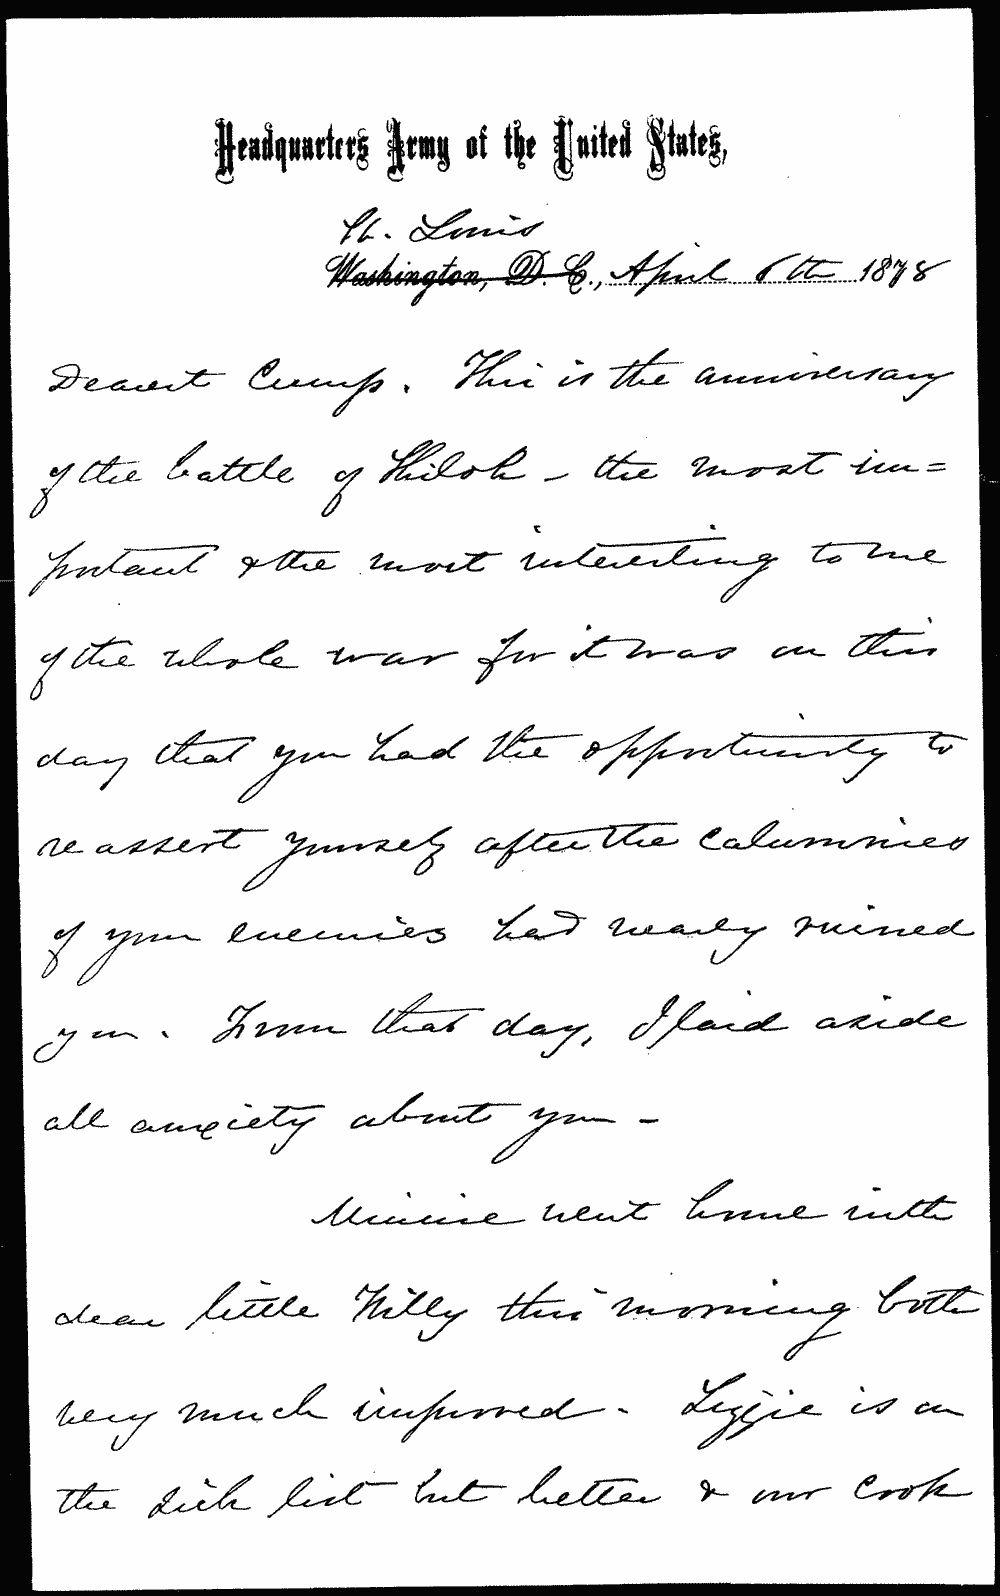 Headquarters Army of the United States,
St. Louis
Washington, D. C., April 6th 1878
Dearest Cump. This is the anniversary
of the battle of Shiloh - the most im=
portant & the most interesting to me
of the whole war for it was on this
day that you had the opportunity to
reassert yourself after the calumnies
of your enemies had nearly ruined
you. From that day, I laid aside
all anxiety about you -
Minnie went home with
dear little Willy this morning both
very much improved. Lizzie is on
the sick list but better & our cook